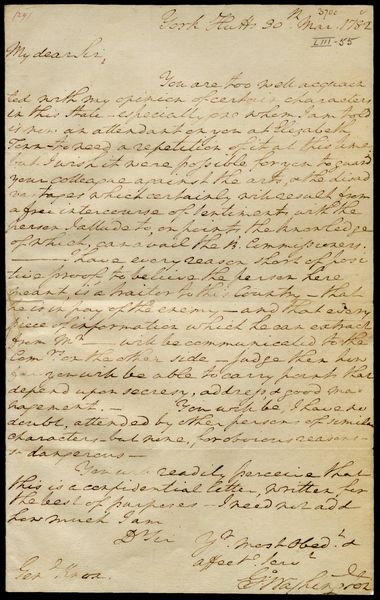 York Hutts 30th Mar. 1782
LIII-55
My dear Sir,
You are too well acquain
ted with my opinion of certain characters
in this State - especially one whom I am told
is now an attendant on you at Elizabeth
Town - to need a repetition of it at this time,
but I wish it were possible for you to guard
your colleague against the arts, & the disad
vantages which certainly will result from
a free intercourse of Sentiments with the
person I allude to, on points, the knowledge
of which, can avail the B. Commissioners.
- I have every reason short of posi
tive proof, to believe the person here
meant, is a traitor to this Country - that
he is in pay of the enemy - and that every
piece of information which he can extract
from Mr - will be communicated to the
Comrs on the other side - judge then how
far you will be able to carry points that
depend upon secresy, address & good ma
nagement. - You will be, I have no
doubt, attended by other persons of similar
characters - but none, for obvious reasons
so dangerous -
You will readily perceive that
this is a confidential letter, written, for
the best of purposes - I need not add
how much I am
Dr Sir
Yr most Obedt &
affecte Servt
Go Washington
Genl Knox.